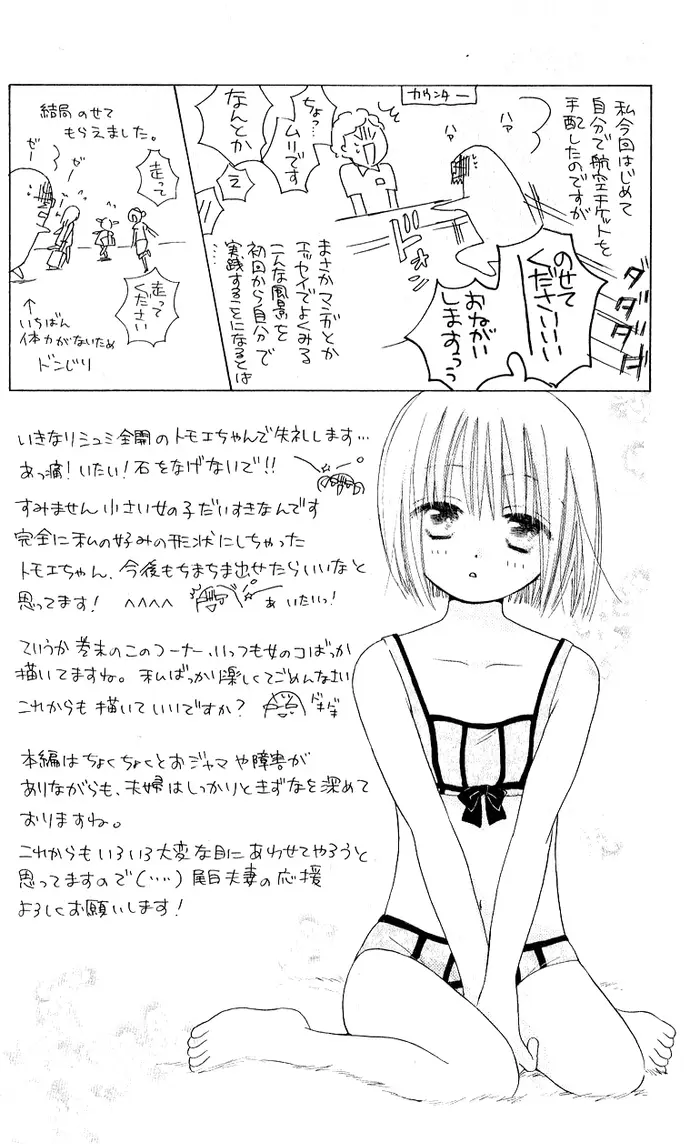 私今回はじめて
自分で航空チケットを
手配したのですが
カウンター
ハァ
ハァ
ダダダダ
のせて
くださいいい
おねがい
しますっうぅ
ドォン
ちょっ…
ムリです
なんとか
え
まさかマンガとか
エッセイでよくみる
こんな風景を
初回から自分で
実践することになるとは
…
結局のせて
もらえました。
ゼー
ゼー
走って
走って
ください
↑
いちばん
体力がないため
ドンじり
いきなりシュミ全開のトモエちゃんで失礼します…
あっ痛!いたい!石をなげないで!!
すみません小さい女の子だいすきなんです
完全に私の好みの形状にしちゃった
トモエちゃん、今後もちまちま出せたらいいなと
思ってます! ^^^^ あ いたいっ!
ていうか巻末のこのコーナーいっつも女のコばっか
描いてますね。私ばっかり楽しくてごめんなさい
これからも描いていいですか? ドキドキ
本編はちょくちょくとおジャマや障害が
ありながらも、夫婦はしっかりときずなを深めて
おりますね。
これからもいろいろ大変な目にあわせてやろうと
思ってますので(…)尾白夫妻の応援
よろしくお願いします!